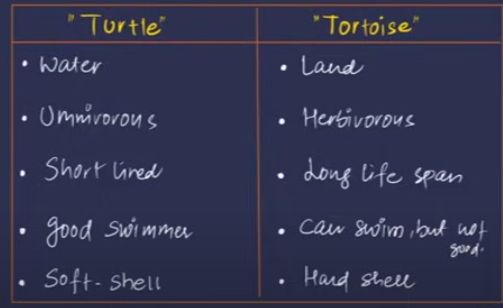 "Turtle"
"Tortoise"
• Water
• Land
• Ommivorous
• Herbivorous
• Short lived
• Long life span
• good swimmer
• Can swim, but not
good.
• Soft-shell
• Hard shell